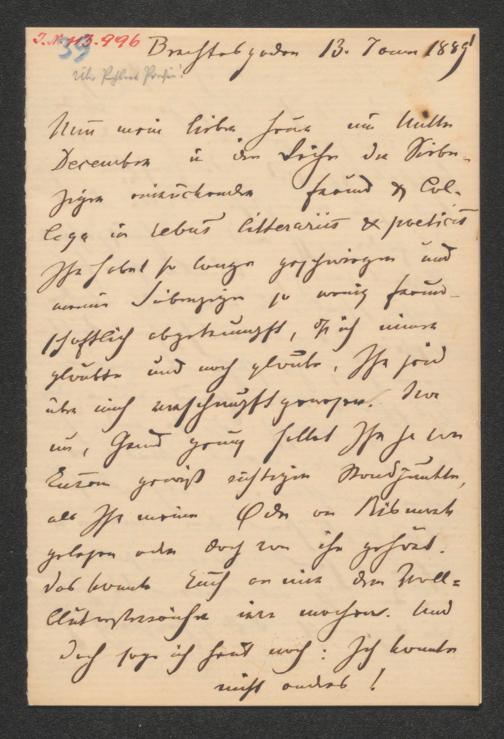 I.N. 113.996
39
Berchtesgaden 13. Jänn 1889
Nun mein lieber heuer um Mitte
December in die Reihe der Sieben-
ziger einrückender Freund & Col-
lega in rebus litterariis & poeticis
Ihr habet so lange geschwiegen und
meine Siebenziger so wenig freund-
schaftlich abgetrumpft, daß ich immer
glaubte und noch glaube, Ihr seid
über mich verschnupft gewesen.
um, Grund genug hattet Ihr ja von
Eurem gewiß richtigen Standpunkte,
als Ihr meine Ode an Bismark
gelesen oder doch von ihr gehört.
Das konnte Euch an mir dem Voll-
blutösterreicher irre machen. Und
doch sage ich heut noch: Ich konnte
nicht anders!